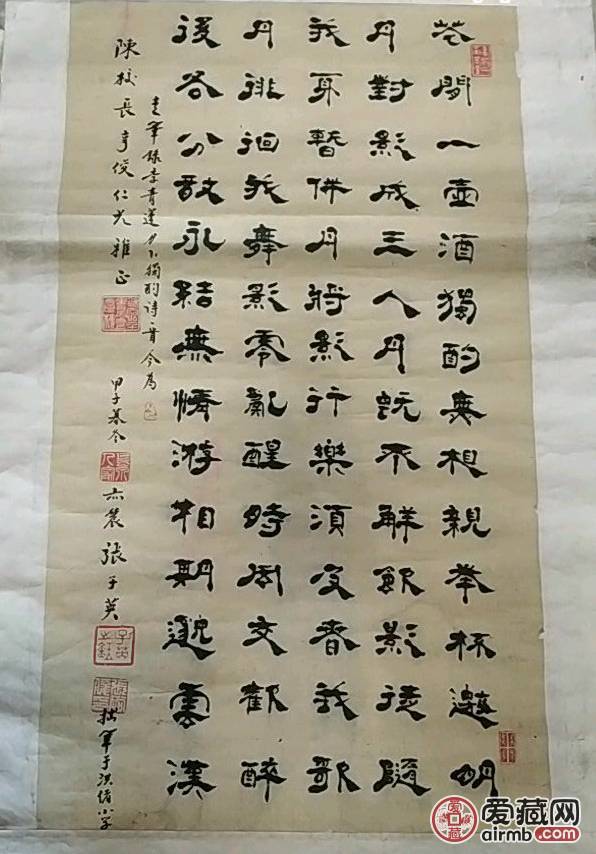 花間一壺酒獨酌無相親舉杯邀明
月對影成三人月既不解飲影徒隨
我身暫伴月將影行樂須及春我歌
月徘徊我舞影零亂醒時同交歡醉
後各分散永結無情游相期邈雲漢
走筆錄李青蓮月下獨酌詩一首今為
陳校長亨俊仁大雅正
甲子暮冬
張子英
拙筆于洪緒小学
爱藏网
airmb.com